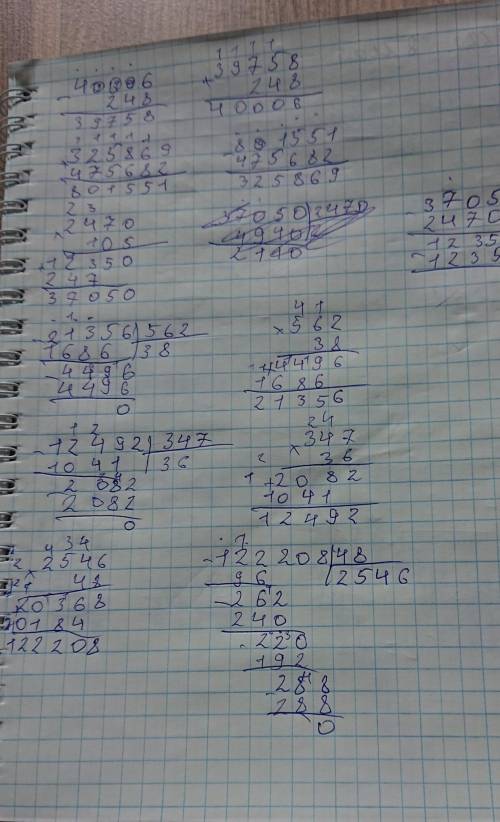 40006
- 248
39758
1 1 1 1
39758
+ 248
40006
1 1 1 1
325869
475682
801551
801551
- 475682
325869
2 3
2470
× 105
+ 12350
247
37050
3705
- 2470
1235
- 1235
1
- 21356 | 562
1686 | 38
- 4496
4496
0
4 1
× 562
38
+ 4496
1686
21356
1 2
- 12492 | 347
1041 | 36
- 2082
2082
0
2 4
× 347
36
+ 2082
1041
12492
4 3 4
× 2546
48
20368
10184
122208
- 122208 | 48
96 | 2546
- 262
240
- 220
192
- 288
288
0